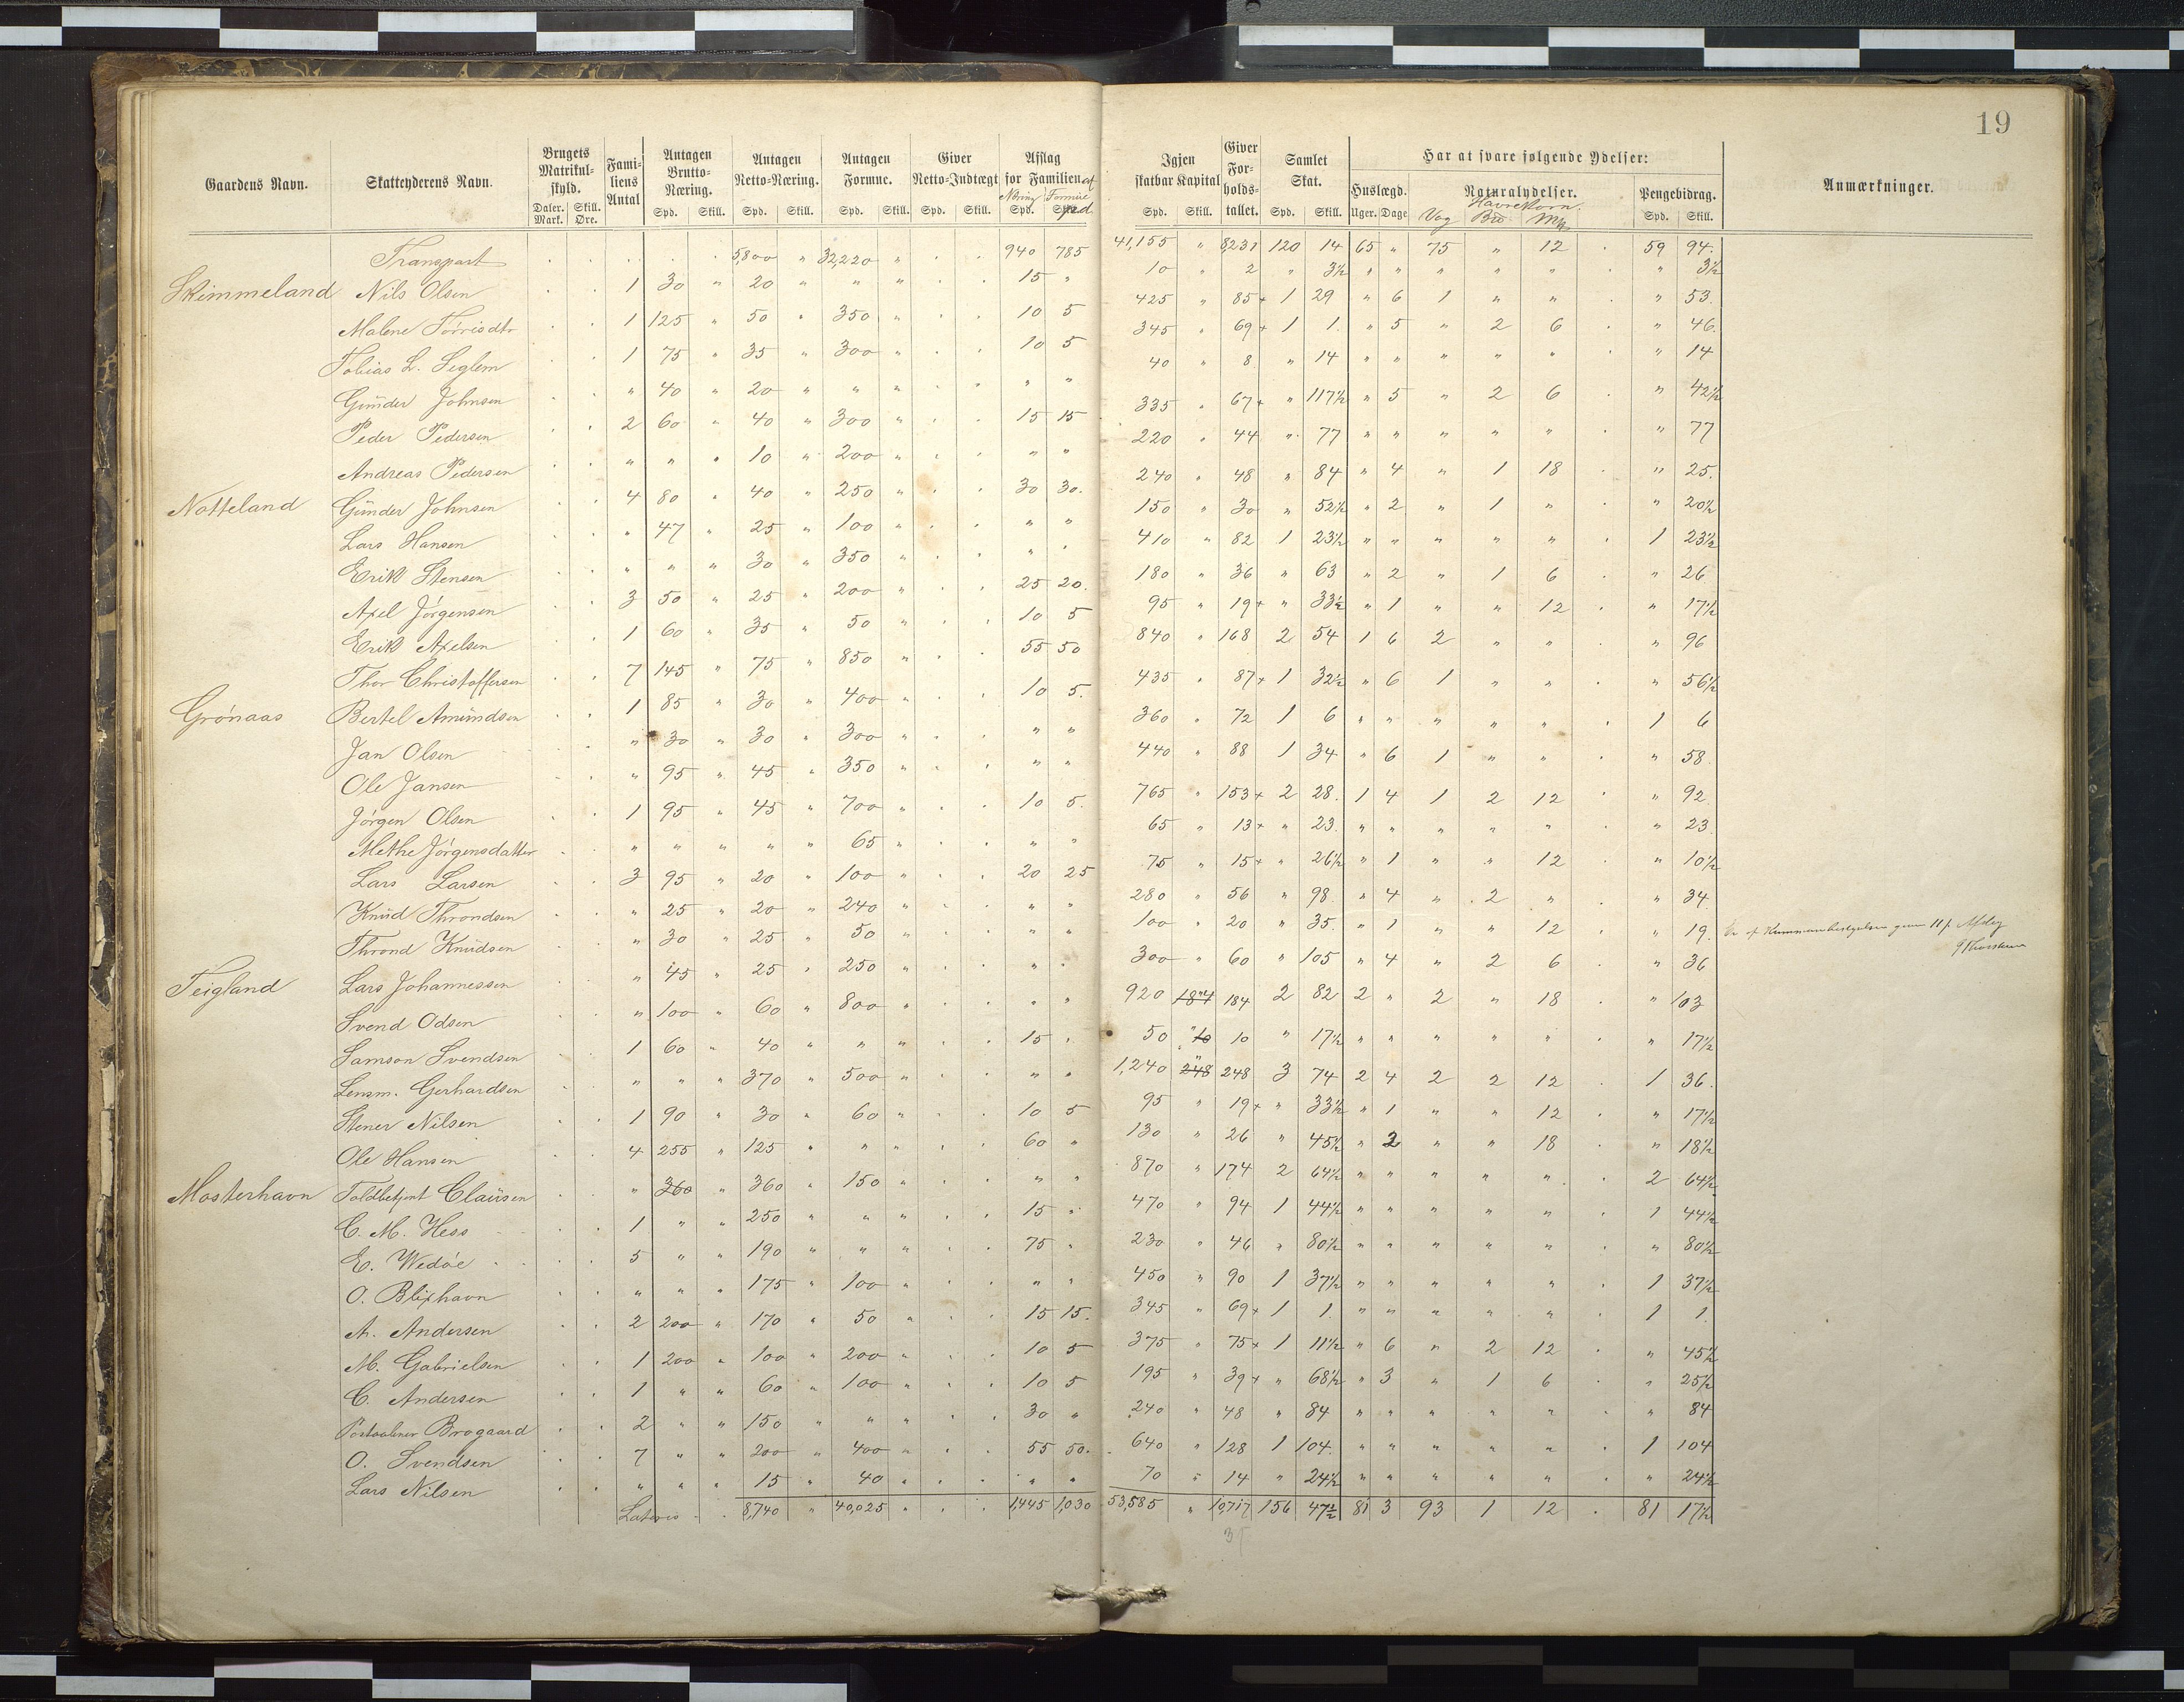 19
Gaardens Navn. Skatteyderens Navn. Brugets Matrikul-skyld. Daler. Mark. Skill. Øre. Fami-liens Antal Antagen Brutto-Næring. Spd. Skill. Antagen Netto-Næring. Spd. Skill. Antagen Formue. Spd. Skill. Giver Netto-Indtægt Spd. Skill. Afslag for Familien af Næring Spd. Formue Spd. Igjen skatbar Kapital Spd. Skill. Giver For-holds-tallet. Samlet Skat. Spd. Skill. Har at svare følgende Ydelser: Huslægd. Uger. Dage Naturalydelser. Havrekorn. Vog Bd. Mk Pengebidrag. Spd. Skill. Anmærkninger.
Transport . . . . . 5,800 " 32,220 " . . 940 785 41,155 " 8,231 120 14 65 " 75 " 12 . 59 94.
Skimmeland Nils Olsen . . 1 30 " 20 " " " . . 15 " 10 " 2 " 3½ " " " " " . " 3½
Malene Tørrisdtr . . 1 125 " 50 " 350 " . . 10 5 425 " 85+ 1 29 " 6 1 " " . " 53.
Tobias L. Seglem . . 1 75 " 35 " 300 " . . 10 5 345 " 69+ 1 1. " 5 " 2 6 . " 46.
Gunder Johnsen . . " 40 " 20 " " " . . " " 40 " 8 " 14 " " " " " . " 14
Peder Pedersen . . 2 60 " 40 " 300 " . . 15 15 335 " 67+ " 117½ " 5 " 2 6 . " 42½
Andreas Pedersen . . " " " 10 " 200 " . . " " 220 " 44 " 77 " " " " " . " 77
Notteland Gunder Johnsen . . 4 80 " 40 " 250 " . . 30 30. 240 " 48 " 84 " 4 " 1 18 . " 25.
Lars Hansen . . " 47 " 25 " 100 " . . " " 150 " 30 " 52½ " 2 " 1 " . " 20½
Erik Stensen . . " " " 30 " 350 " . . " " 410 " 82 1 23½ " " " " " . 1 23½
Axel Jørgensen . . 3 50 " 25 " 200 " . . 25 20. 180 " 36 " 63 " 2 " 1 6 . " 26
Erik Axelsen . . 1 60 " 35 " 50 " . . 10 5 95 " 19+ " 33½ " 1 " " 12 . " 17½
Thor Christoffersen . . 7 145 " 75 " 850 " . . 55 50 840 " 168 2 54 1 6 2 " " . " 96
Grønaas Bertel Amundsen . . 1 85 " 30 " 400 " . . 10 5. 435 " 87+ 1 32½ " 6 1 " " . " 56½
Jan Olsen . . " 30 " 30 " 300 " . . " " 360 " 72 1 6 " " " " " . 1 6
Ole Jansen . . " 95 " 45 " 350 " . . " " 440 " 88 1 34 " 6 1 " " . " 58.
Jørgen Olsen . . 1 95 " 45 " 700 " . . 10 5. 765 " 153+ 2 28. 1 4 1 2 12 . " 92
Methe Jørgensdatter . . " " " " " 65 " . . " " 65 " 13+ " 23. " " " " " . " 23.
Lars Larsen . . 3 95 " 20 " 100 " . . 20 25 75 " 15+ " 26½ " 1 " " 12 . " 10½
Knud Throndsen . . " 25 " 20 " 240 " . . " " 280 " 56 " 98. " 4 " 2 " . " 34
Thrond Knudsen . . " 30 " 25 " 50 " . . " " 100 " 20 " 35. " 1 " " 12 . " 19.
Teigland Lars Johannessen . . " 45 " 25 " 250 " . . " " 300 " 60 " 105 " 4 " 2 6 . " 36
Svend Odsen . . " 100 " 60 " 800 " . . " " 920 184 184 2 82 2 " 2 " 18 . " 103
Samson Svendsen . . 1 60 " 40 " " " . . 15 " 50 10 10 " 17½ " " " " " . " 17½
Lensm. Gerhardsen . . " " " 370 " 500 " . . " " 1,240 248 248 3 74 2 4 2 2 12 . 1 36.
Stener Nilsen . . 1 90 " 30 " 60 " . . 10 5 95 " 19+ " 33½ " 1 " " 12 . " 17½
Ole Hansen . . 4 255 " 125 " " " . . 60 " 130 " 26 " 45½ " 2 " " 18 . " 18½
Mosterhavn Toldbetjent Clausen . . " 360 " 360 " 150 " . . " " 870 " 174 2 64½ " " " " " . 2 64½
C. M. Hess . . 1 " " 250 " " " . . 15 " 470 " 94 1 44½ " " " " " . 1 44½
E. Wedøe . . 5 " " 190 " " " . . 75 " 230 " 46 " 80½ " " " " " . " 80½
O. Blixhavn . . " " " 175 " 100 " . . " " 450 " 90 1 37½ " " " " " . 1 37½
A. Andersen . . 2 200 " 170 " 50 " . . 15 15. 345 " 69+ 1 1. " " " " " . 1 1.
M. Gabrielsen . . 1 200 " 100 " 200 " . . 10 5 375 " 75+ 1 11½ " 6 " 2 12 . " 45½
C. Andersen . . 1 " " 60 " 100 " . . 10 5 195 " 39+ " 68½ " 3 " 1 6 . " 25½
Brogaard . . 2 " " 150 " " " . . 30 " 240 " 48 " 84 " " " " " . " 84
O. Svendsen . . 7 " " 200 " 400 " . . 55 50. 640 " 128 1 104. " " " " " . 1 104
Lars Nilsen . . " " " 15 " 40 " . . " " 70 " 14 " 24½ " " " " " . " 24½
Lateris . . 8,740 " 40,025 " . . 1,445 1,030 53,585 " 10,717 156 47½ 81 3 93 1 12 . 81 17½